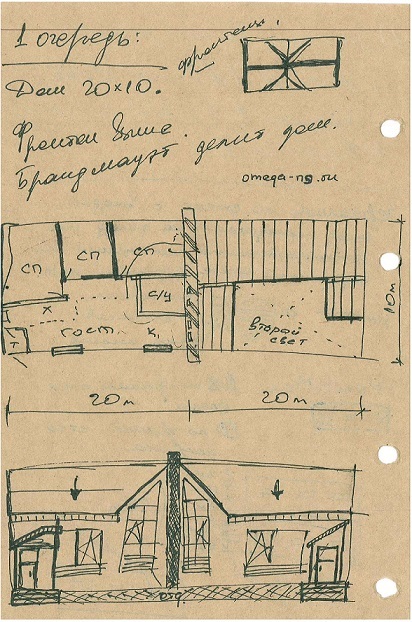 1 очередь:
фронтон.
Дом 20×10.
Фронтон выше.
Брандмауэр делит дом.
omega-ng.ru
СП
СП
СП
С/У
Х
ГОСТ.
К.
Т
второй
свет
10м
20м
20м